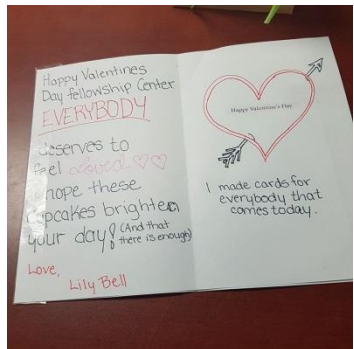 Happy Valentines
Day fellowship Center
EVERYBODY
deserves to
feel loved
I hope these
cupcakes brighten
your day! (And that
there is enough)
Love,
Lily Bell
Happy Valentine's Day
I made cards for
everybody that
comes today.